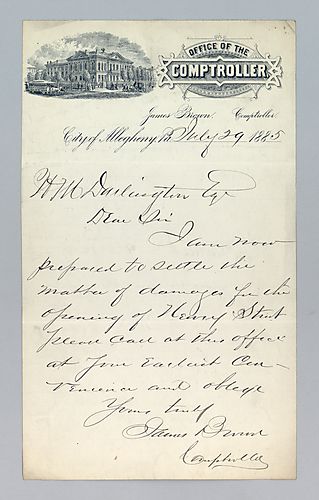 OFFICE OF THE
COMPTROLLER
James Brown, Comptroller.
City of Allegheny, Pa. July 29 1885
H M Darlington Esq
Dear Sir
I am now
prepared to settle the
matter of damages for the
opening of Henry Street
please call at this office
at your Earliest Con-
venience and oblige
Yours truly
James Brown
Comptroller